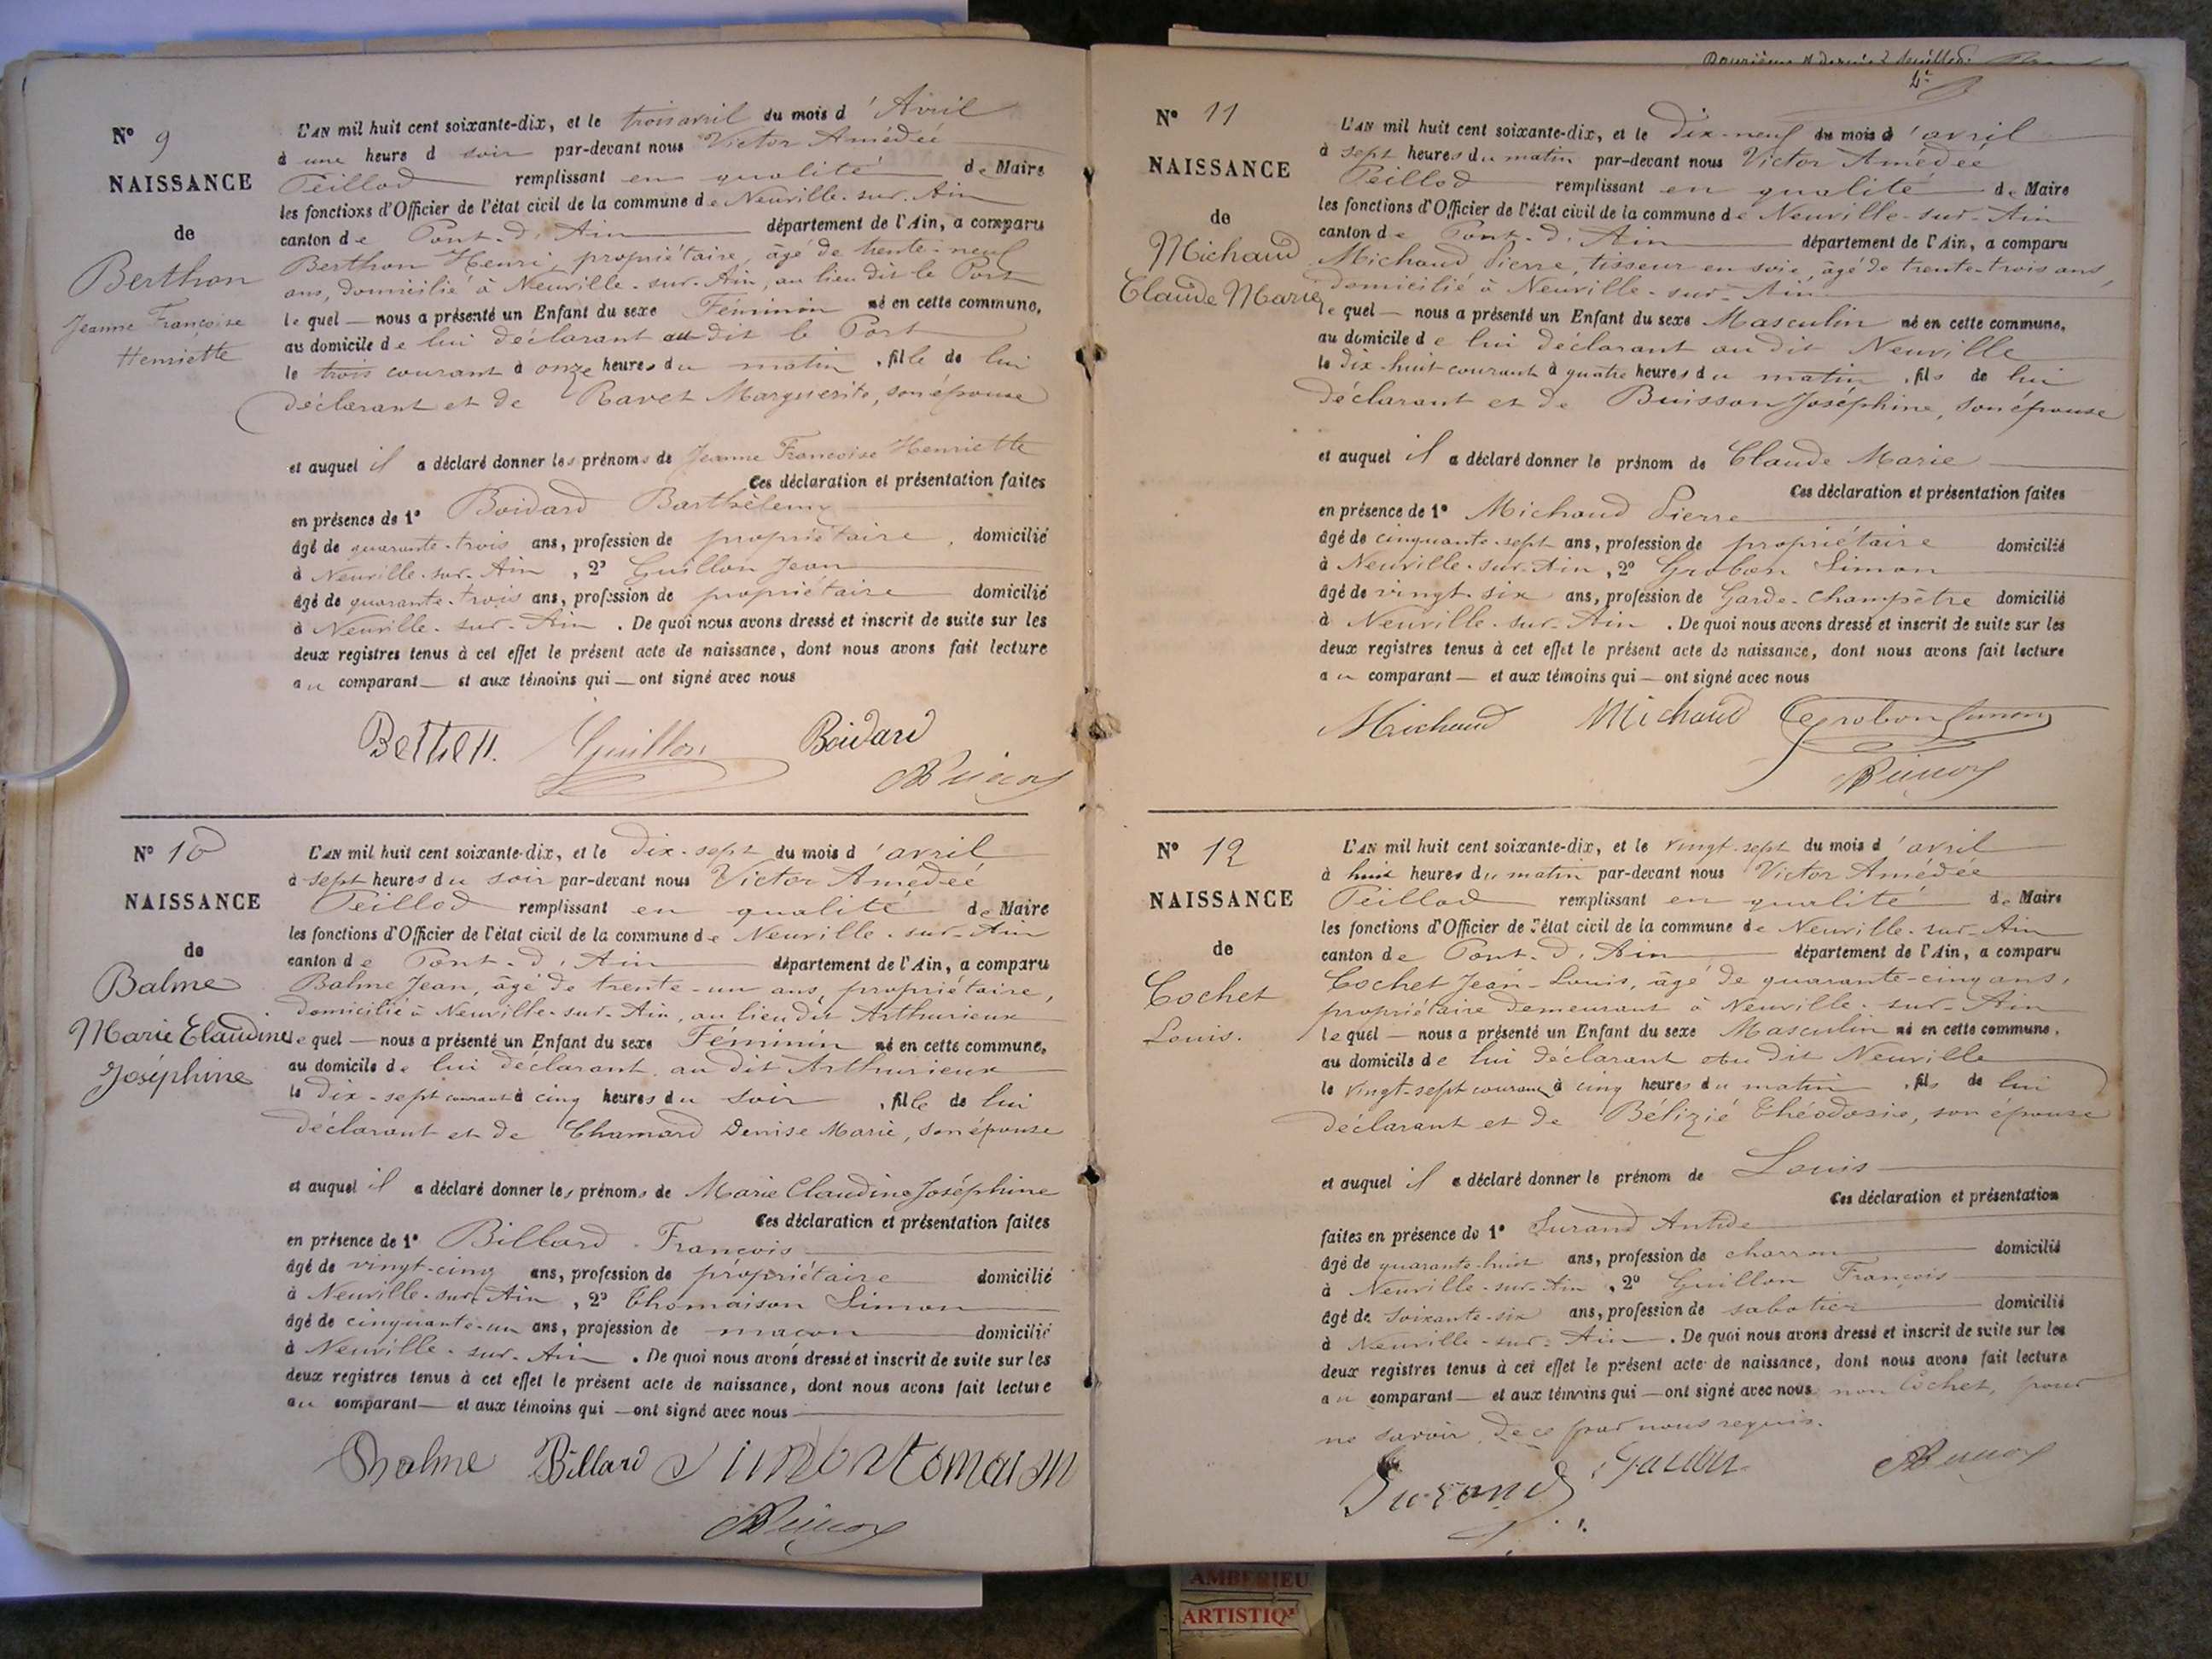 Nº 9
NAISSANCE
de
Berthon
Jeanne Françoise
Henriette
L'AN mil huit cent soixante-dix, et le trois avril du mois d'Avril
à une heure d soir par-devant nous Victor Amédée
Peillod remplissant en qualité de Maire
les fonctions d'Officier de l'état civil de la commune de Neuville-sur-Ain
canton de Pont-d'Ain département de l'Ain, a comparu
Berthon Henri, propriétaire, âgé de trente-neuf
ans, domicilié à Neuville-sur-Ain, au lieu dit le Port
lequel — nous a présenté un Enfant du sexe Féminin né en cette commune,
au domicile de lui déclarant au dit le Port
le trois courant à onze heures du matin, fille de lui
déclarant et de Ravet Marguerite, son épouse
et auquel il a déclaré donner les prénoms de Jeanne Françoise Henriette
Ces déclaration et présentation faites
en présence de 1º Boidard Barthélemy
âgé de quarante-trois ans, profession de propriétaire, domicilié
à Neuville-sur-Ain, 2º Guillon Jean
âgé de quarante-trois ans, profession de propriétaire domicilié
à Neuville-sur-Ain. De quoi nous avons dressé et inscrit de suite sur les
deux registres tenus à cet effet le présent acte de naissance, dont nous avons fait lecture
au comparant — et aux témoins qui — ont signé avec nous
Guillon Boidard
Nº 10
NAISSANCE
de
Balme
Marie Claudine
Joséphine
L'AN mil huit cent soixante-dix, et le dix-sept du mois d'avril
à sept heures du soir par-devant nous Victor Amédée
Peillod remplissant en qualité de Maire
les fonctions d'Officier de l'état civil de la commune de Neuville-sur-Ain
canton de Pont-d'Ain département de l'Ain, a comparu
Balme Jean, âgé de trente-un ans, propriétaire,
domicilié à Neuville-sur-Ain, au lieu dit Arthurieux
lequel — nous a présenté un Enfant du sexe Féminin né en cette commune,
au domicile de lui déclarant, au dit Arthurieux
le dix-sept courant à cinq heures du soir, fille de lui
déclarant et de Chamard Denise Marie, son épouse
et auquel il a déclaré donner les prénoms de Marie Claudine Joséphine
Ces déclaration et présentation faites
en présence de 1º Billard François
âgé de vingt-cinq ans, profession de propriétaire domicilié
à Neuville-sur-Ain, 2º Thomaison Simon
âgé de cinquante-un ans, profession de maçon domicilié
à Neuville-sur-Ain. De quoi nous avons dressé et inscrit de suite sur les
deux registres tenus à cet effet le présent acte de naissance, dont nous avons fait lecture
au comparant — et aux témoins qui — ont signé avec nous
Balme Billard
4e
Nº 11
NAISSANCE
de
Michaud
Claude Marie
L'AN mil huit cent soixante-dix, et le dix-neuf du mois d'avril
à sept heures du matin par-devant nous Victor Amédée
Peillod remplissant en qualité de Maire
les fonctions d'Officier de l'état civil de la commune de Neuville-sur-Ain
canton de Pont-d'Ain département de l'Ain, a comparu
Michaud Pierre, tisseur en soie, âgé de trente-trois ans,
domicilié à Neuville-sur-Ain
lequel — nous a présenté un Enfant du sexe Masculin né en cette commune,
au domicile de lui déclarant au dit Neuville
le dix-huit courant à quatre heures du matin, fils de lui
déclarant et de Buisson Joséphine, son épouse
et auquel il a déclaré donner le prénom de Claude Marie
Ces déclaration et présentation faites
en présence de 1º Michaud Pierre
âgé de cinquante-sept ans, profession de propriétaire domicilié
à Neuville-sur-Ain, 2º Grobon Simon
âgé de vingt-six ans, profession de Garde-Champêtre domicilié
à Neuville-sur-Ain. De quoi nous avons dressé et inscrit de suite sur les
deux registres tenus à cet effet le présent acte de naissance, dont nous avons fait lecture
au comparant — et aux témoins qui — ont signé avec nous
Michaud Michaud Grobon Simon
Nº 12
NAISSANCE
de
Cochet
Louis.
L'AN mil huit cent soixante-dix, et le vingt-sept du mois d'avril
à huit heures du matin par-devant nous Victor Amédée
Peillod remplissant en qualité de Maire
les fonctions d'Officier de l'état civil de la commune de Neuville-sur-Ain
canton de Pont-d'Ain département de l'Ain, a comparu
Cochet Jean-Louis, âgé de quarante-cinq ans,
propriétaire demeurant à Neuville-sur-Ain
lequel — nous a présenté un Enfant du sexe Masculin né en cette commune,
au domicile de lui déclarant au dit Neuville
le vingt-sept courant à cinq heures du matin, fils de lui
déclarant et de Bélizié Théodosie, son épouse
et auquel il a déclaré donner le prénom de Louis
Ces déclaration et présentation
faites en présence de 1º Durand Antide
âgé de quarante-huit ans, profession de charron domicilié
à Neuville-sur-Ain, 2º Guillon François
âgé de soixante-six ans, profession de sabotier domicilié
à Neuville-sur-Ain. De quoi nous avons dressé et inscrit de suite sur les
deux registres tenus à cet effet le présent acte de naissance, dont nous avons fait lecture
au comparant — et aux témoins qui — ont signé avec nous non Cochet, pour
ne savoir, de ce par nous requis.
Durand
AMBERIEU
ARTISTIQ